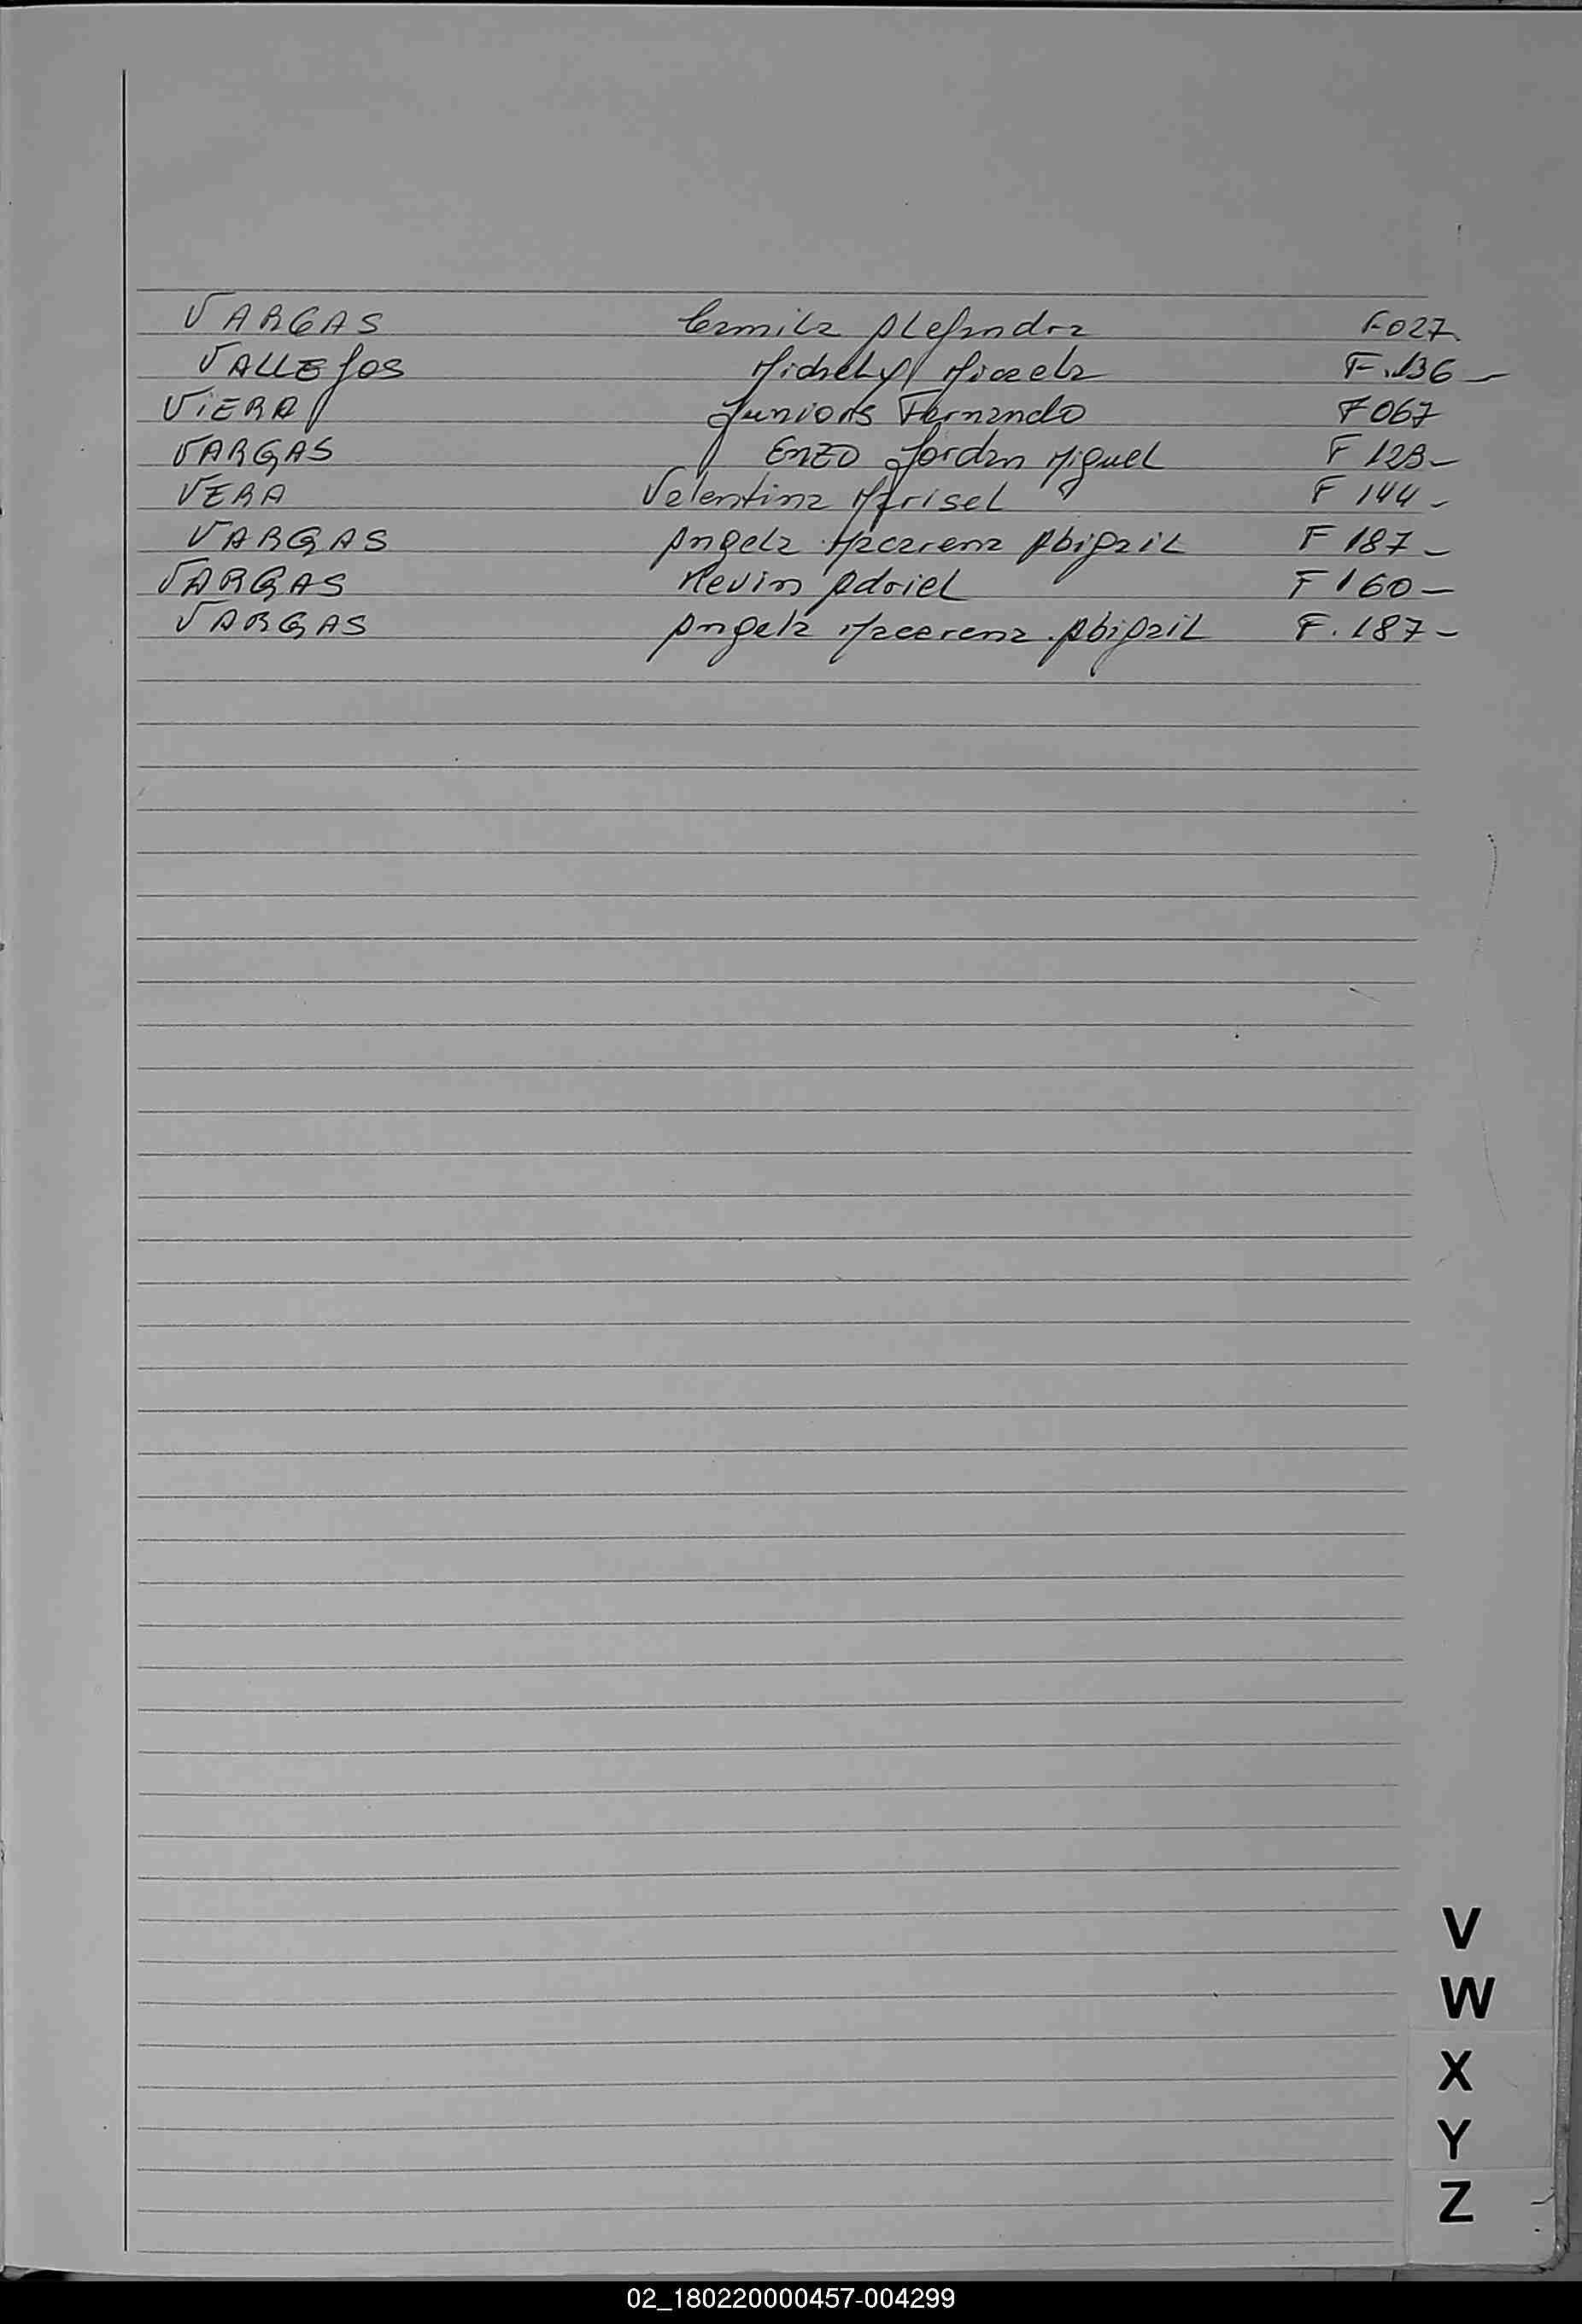 VARGAS Camila Alejandra F-027.
VALLEJOS Michely Micaela F.136-
VIERA Juniors Fernando F067
VARGAS ENZO Jordan Miguel F 123-
VERA Valentina Marisel F 144-
VARGAS Angela Macarena Abigail F 187-
VARGAS Kevin Adriel F 160-
VARGAS Angela Macarena Abigail F.187-
V
W
X
Y
Z
02_180220000457-004299